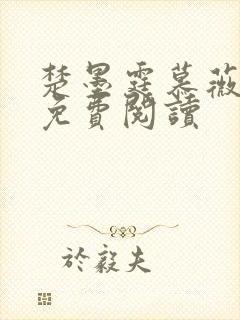 楚墨霆慕薇
免費閱讀
於毅夫